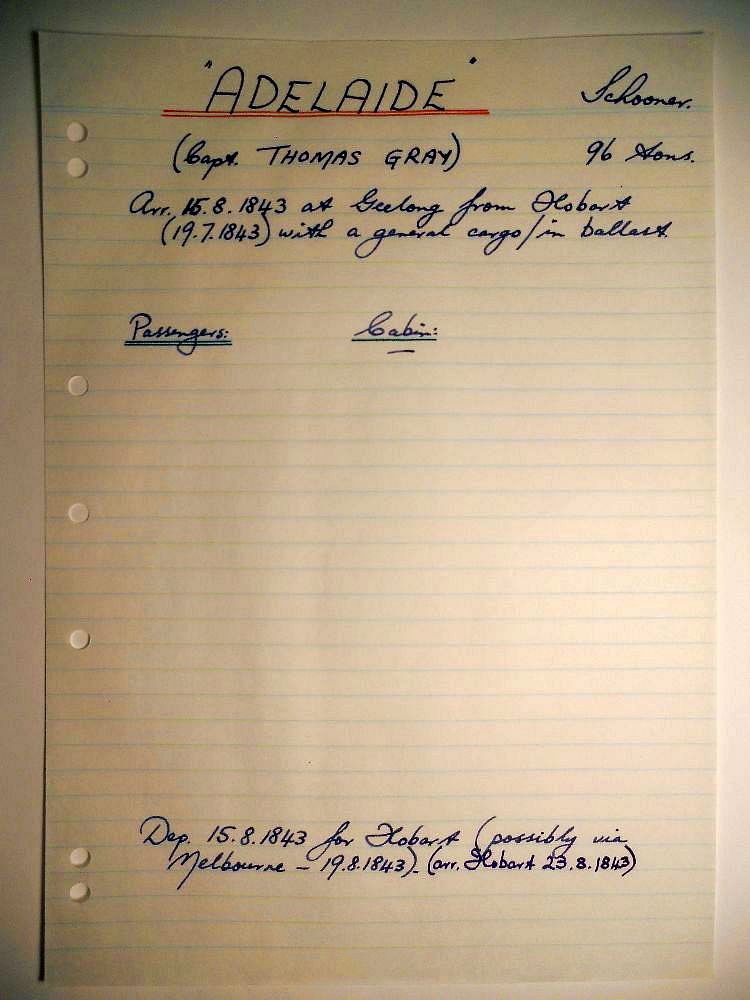 "ADELAIDE"
Schooner.
(Capt. THOMAS GRAY)
96 tons.
Arr. 15.8.1843 at Geelong from Hobart
(19.7.1843) with a general cargo/in ballast.
Passengers:
Cabin:
Dep. 15.8.1843 for Hobart (possibly via
Melbourne – 19.8.1843). (arr. Hobart 23.8.1843)